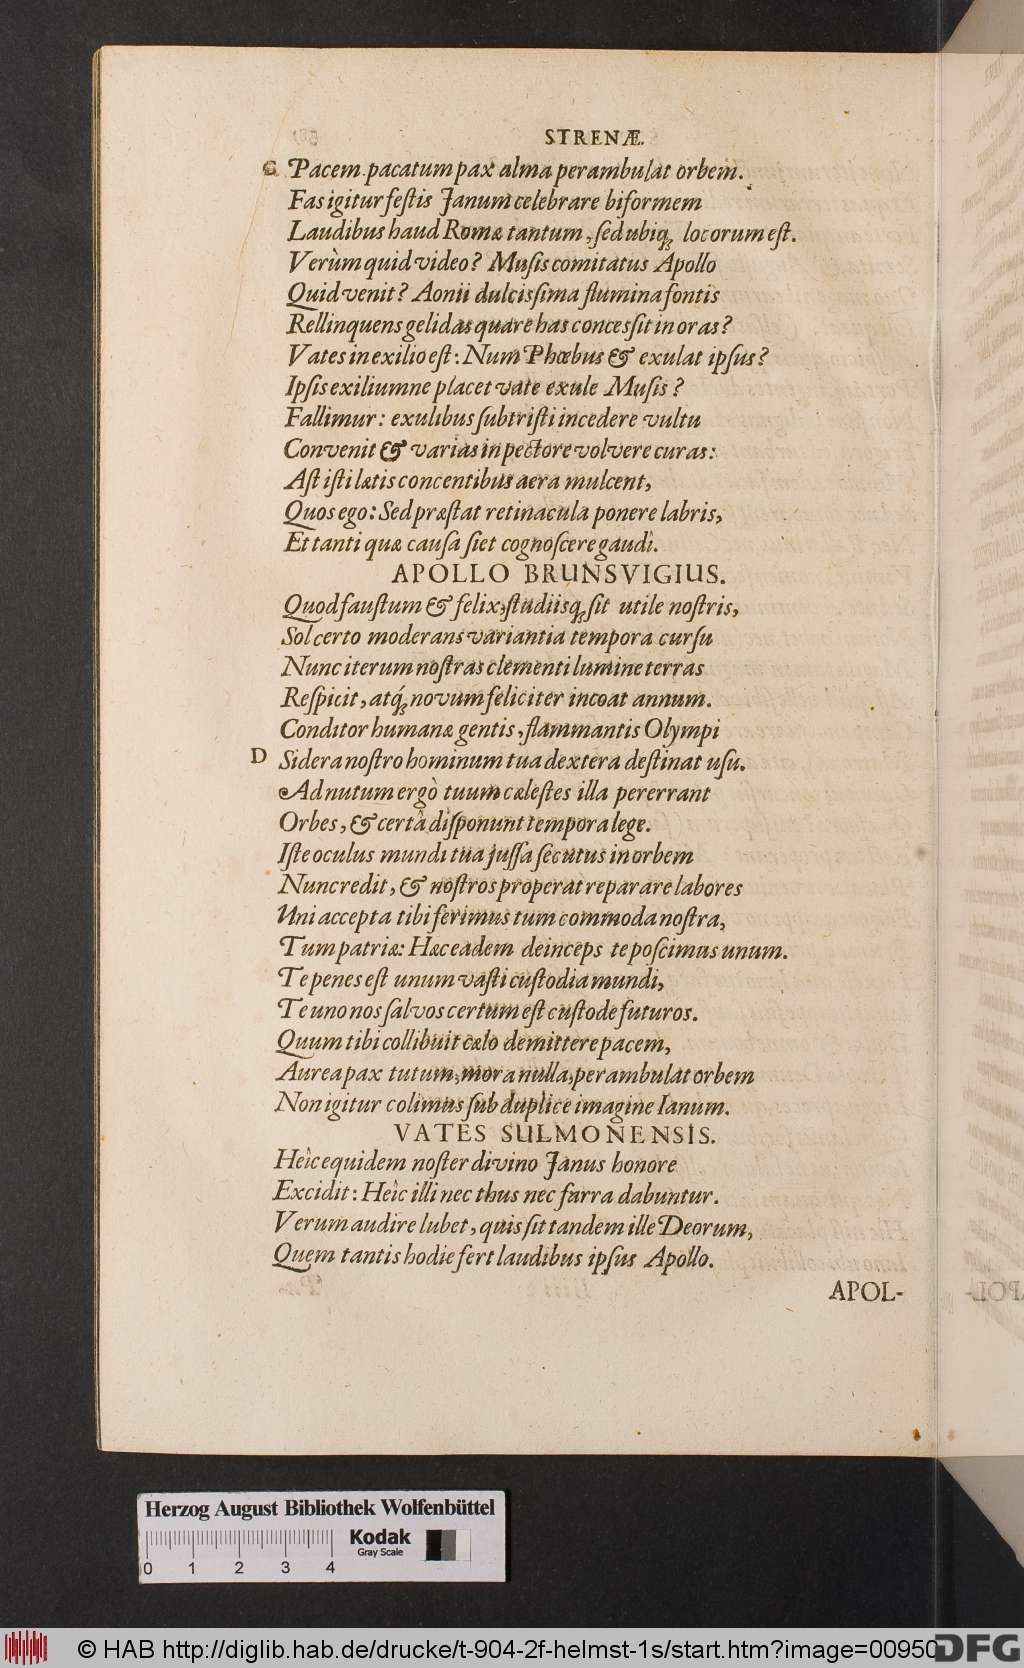 STRENÆ.
C Pacem pacatum pax alma perambulat orbem.
Fas igitur festis Janum celebrare biformem
Laudibus haud Romæ tantum, sed ubiq́; locorum est.
Verùm quid video? Musis comitatus Apollo
Quid venit? Aonii dulcissima flumina fontis
Rellinquens gelidas quare has concessit in oras?
Vates in exilio est: Num Phœbus & exulat ipsus?
Ipsis exiliumne placet vate exule Musis?
Fallimur: exulibus subtristi incedere vultu
Convenit & varias in pectore volvere curas:
Ast isti lætis concentibus aera mulcent,
Quos ego: Sed præstat retinacula ponere labris,
Et tanti quæ causa siet cognoscere gaudî.
APOLLO BRUNSVIGIUS.
Quod faustum & felix, studiisq; sit utile nostris,
Sol certo moderans variantia tempora cursu
Nunc iterum nostras clementi lumine terras
Respicit, atq́; novum feliciter incoat annum.
Conditor humanæ gentis, flammantis Olympi
D Sidera nostro hominum tua dextera destinat usu.
Ad nutum ergò tuum cælestes illa pererrant
Orbes, & certâ disponunt tempora lege.
Iste oculus mundi tua jussa secutus in orbem
Nunc redit, & nostros properat reparare labores
Uni accepta tibi ferimus tum commoda nostra,
Tum patriæ: Hæc eadem deinceps te poscimus unum.
Te penes est unum vasti custodia mundi,
Te uno nos salvos certum est custode futuros.
Quum tibi collibuit cælo demittere pacem,
Aurea pax tutum, mora nulla, perambulat orbem
Non igitur colimus sub duplice imagine Ianum.
VATES SULMONENSIS.
Heîc equidem noster divino Janus honore
Excidit: Heîc illi nec thus nec farra dabuntur.
Verum audire lubet, quis sit tandem ille Deorum,
Quem tantis hodie fert laudibus ipsus Apollo.
APOL-
Herzog August Bibliothek Wolfenbüttel
Kodak
Gray Scale
0 1 2 3 4
© HAB http://diglib.hab.de/drucke/t-904-2f-helmst-1s/start.htm?image=00950
DFG